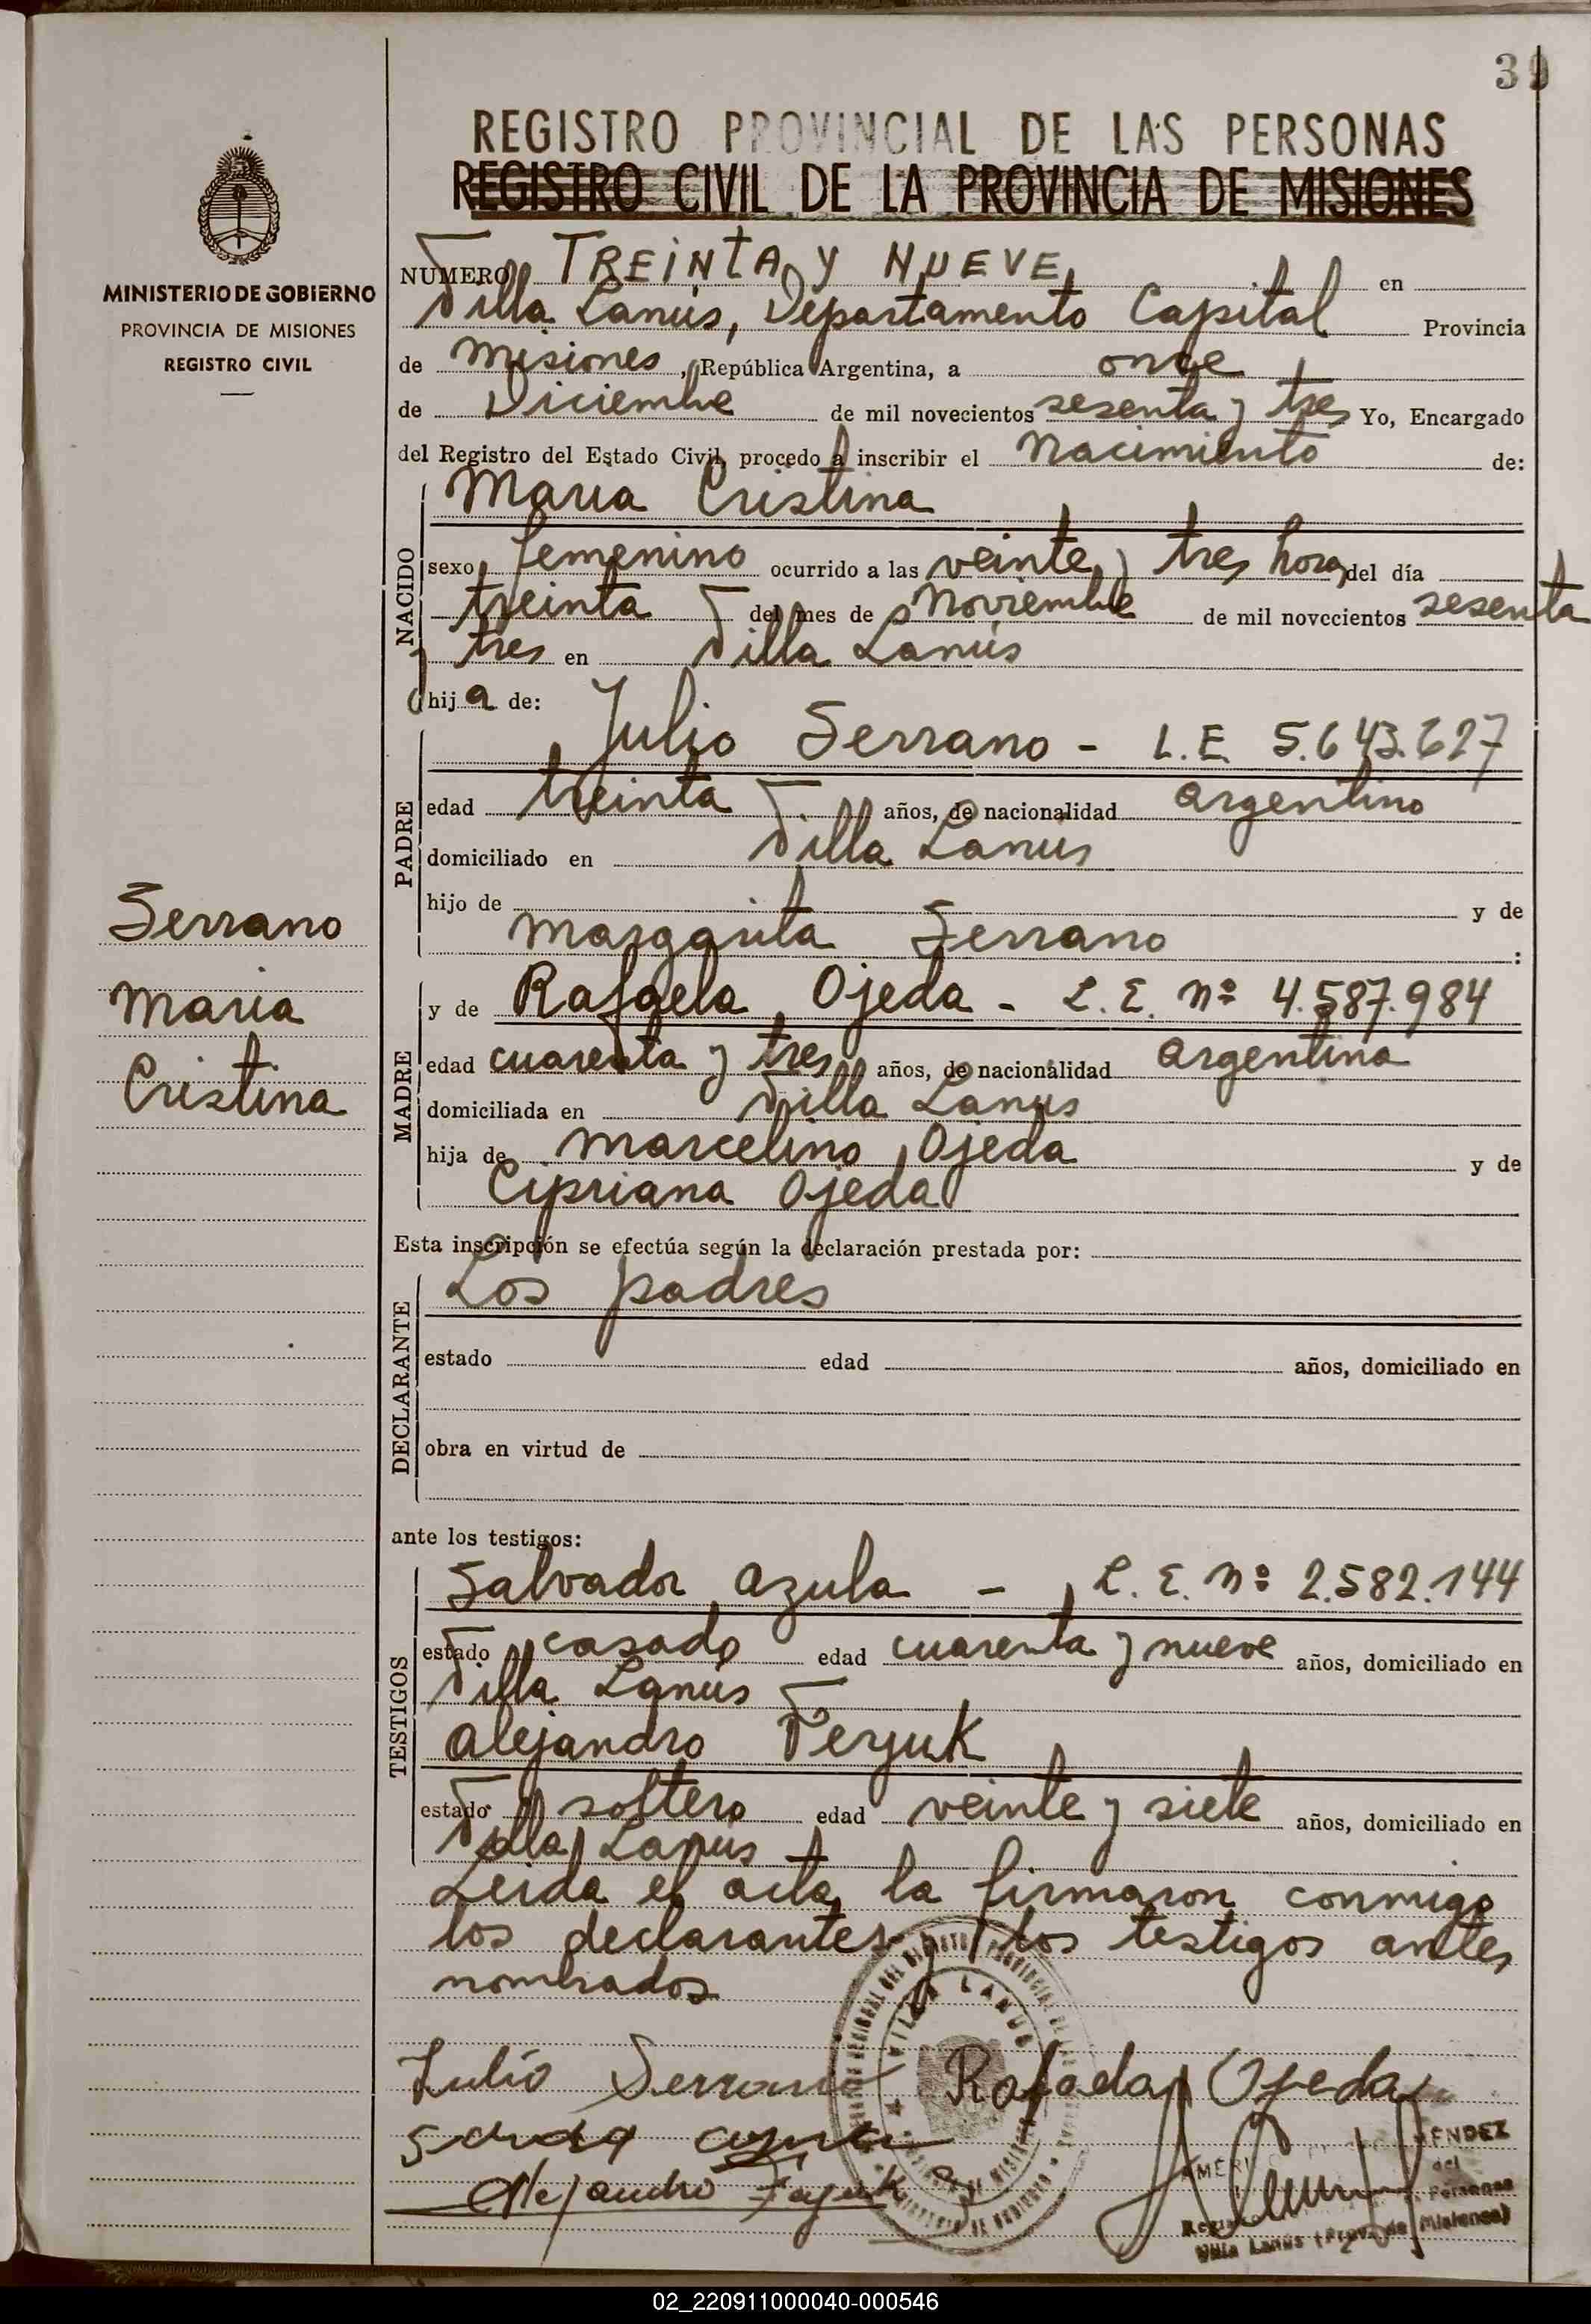 39
REGISTRO PROVINCIAL DE LAS PERSONAS
REGISTRO CIVIL DE LA PROVINCIA DE MISIONES
MINISTERIO DE GOBIERNO
PROVINCIA DE MISIONES
REGISTRO CIVIL
NUMERO TREINTA Y NUEVE en
Villa Lanús, Departamento Capital Provincia
de Misiones, República Argentina, a once
de Diciembre de mil novecientos sesenta y tres Yo, Encargado
del Registro del Estado Civil, procedo a inscribir el Nacimiento de:
NACIDO
Maria Cristina
sexo femenino ocurrido a las veinte y tres horas del día
treinta del mes de Noviembre de mil novecientos sesenta
y tres en Villa Lanús
hija de:
PADRE
Julio Serrano - L.E. 5.643.627
edad treinta años, de nacionalidad argentino
domiciliado en Villa Lanús
hijo de y de
Margarita Serrano :
Serrano
Maria
Cristina
MADRE
y de Rafaela Ojeda - L.E. Nº 4.587.984
edad cuarenta y tres años, de nacionalidad argentina
domiciliada en Villa Lanus
hija de Marcelino Ojeda y de
Cipriana Ojeda
Esta inscripción se efectúa según la declaración prestada por:
DECLARANTE
Los padres
estado edad años, domiciliado en
obra en virtud de
ante los testigos:
TESTIGOS
Salvador Azula - L.E. Nº 2.582.144
estado casado edad cuarenta y nueve años, domiciliado en
Villa Lanús
Alejandro
estado soltero edad veinte y siete años, domiciliado en
Villa Lanús
Leida el acta, la firmaron conmigo
los declarantes y los testigos antes
nombrados
VILLA LANUS
Julio Serrano Rafaela Ojeda
Alejandro
MENDEZ
del
Personas
Villa Lanús (Prov. de Misiones)
02_220911000040-000546